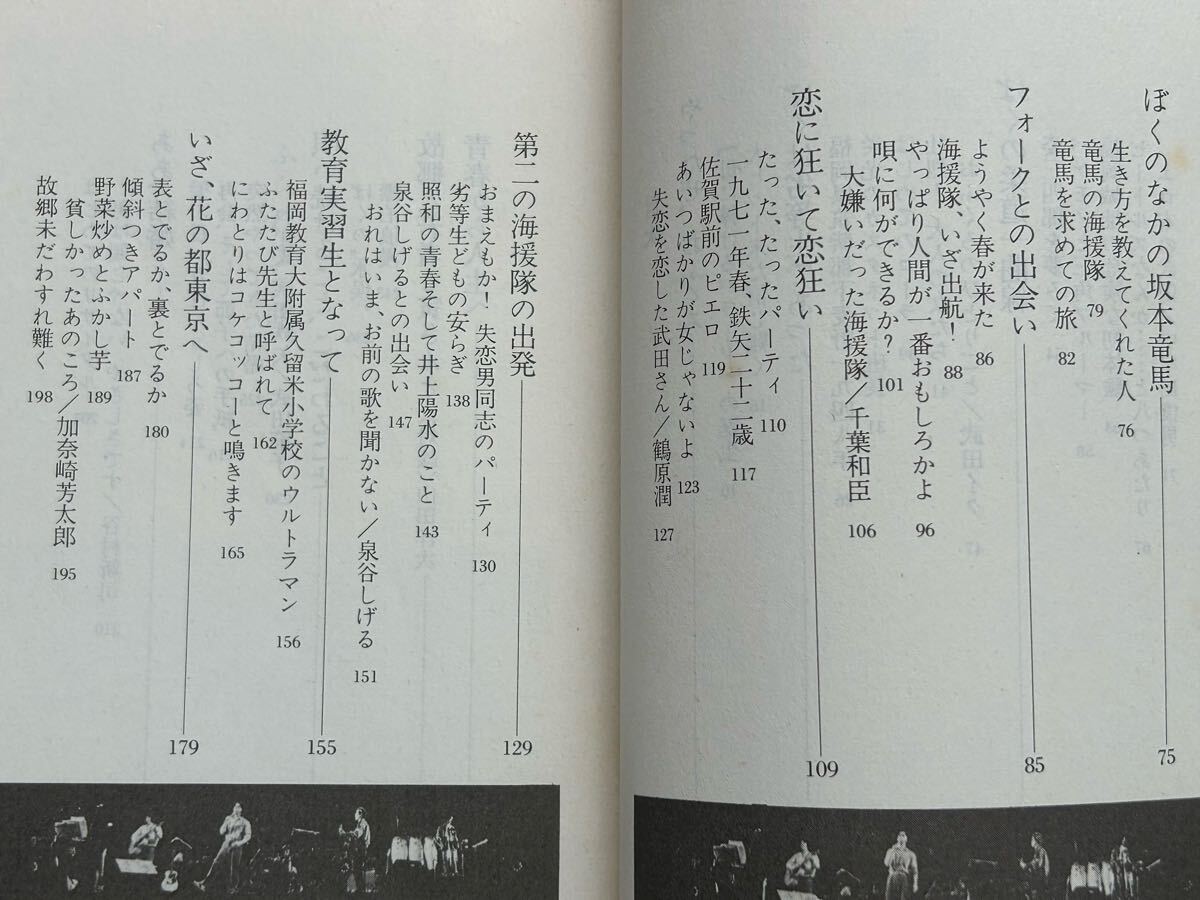 ぼくのなかの坂本竜馬 75
生き方を教えてくれた人 76
竜馬の海援隊 79
竜馬を求めての旅 82
フォークとの出会い 85
ようやく春が来た 86
海援隊、いざ出航! 88
やっぱり人間が一番おもしろかよ 96
唄に何ができるか? 101
大嫌いだった海援隊/千葉和臣 106
恋に狂いて恋狂い 109
たった、たったパーティ 110
一九七一年春、鉄矢二十二歳 117
佐賀駅前のピエロ 119
あいつばかりが女じゃないよ 123
失恋を恋した武田さん/鶴原潤 127
第二の海援隊の出発 129
おまえもか! 失恋男同志のパーティ 130
劣等生どもの安らぎ 138
照和の青春そして井上陽水のこと 143
泉谷しげるとの出会い 147
おれはいま、お前の歌を聞かない/泉谷しげる 151
教育実習生となって 155
福岡教育大附属久留米小学校のウルトラマン 156
ふたたび先生と呼ばれて 162
にわとりはコケコッコーと鳴きます 165
いざ、花の都東京へ 179
表とでるか、裏とでるか 180
傾斜つきアパート 187
野菜炒めとふかし芋 189
貧しかったあのころ/加奈崎芳太郎 195
故郷未だわすれ難く 198